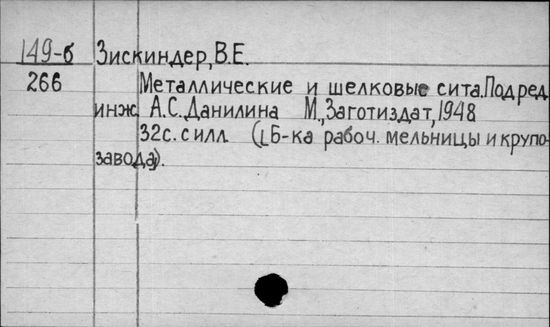 149-б Зискиндер, В.Е.
266 Металлические и шелковые сита. Под ред.
инж. А.С. Данилина М., Заготиздат, 1948
32с. с илл (Б-ка рабоч. мельницы и крупо-
завода).